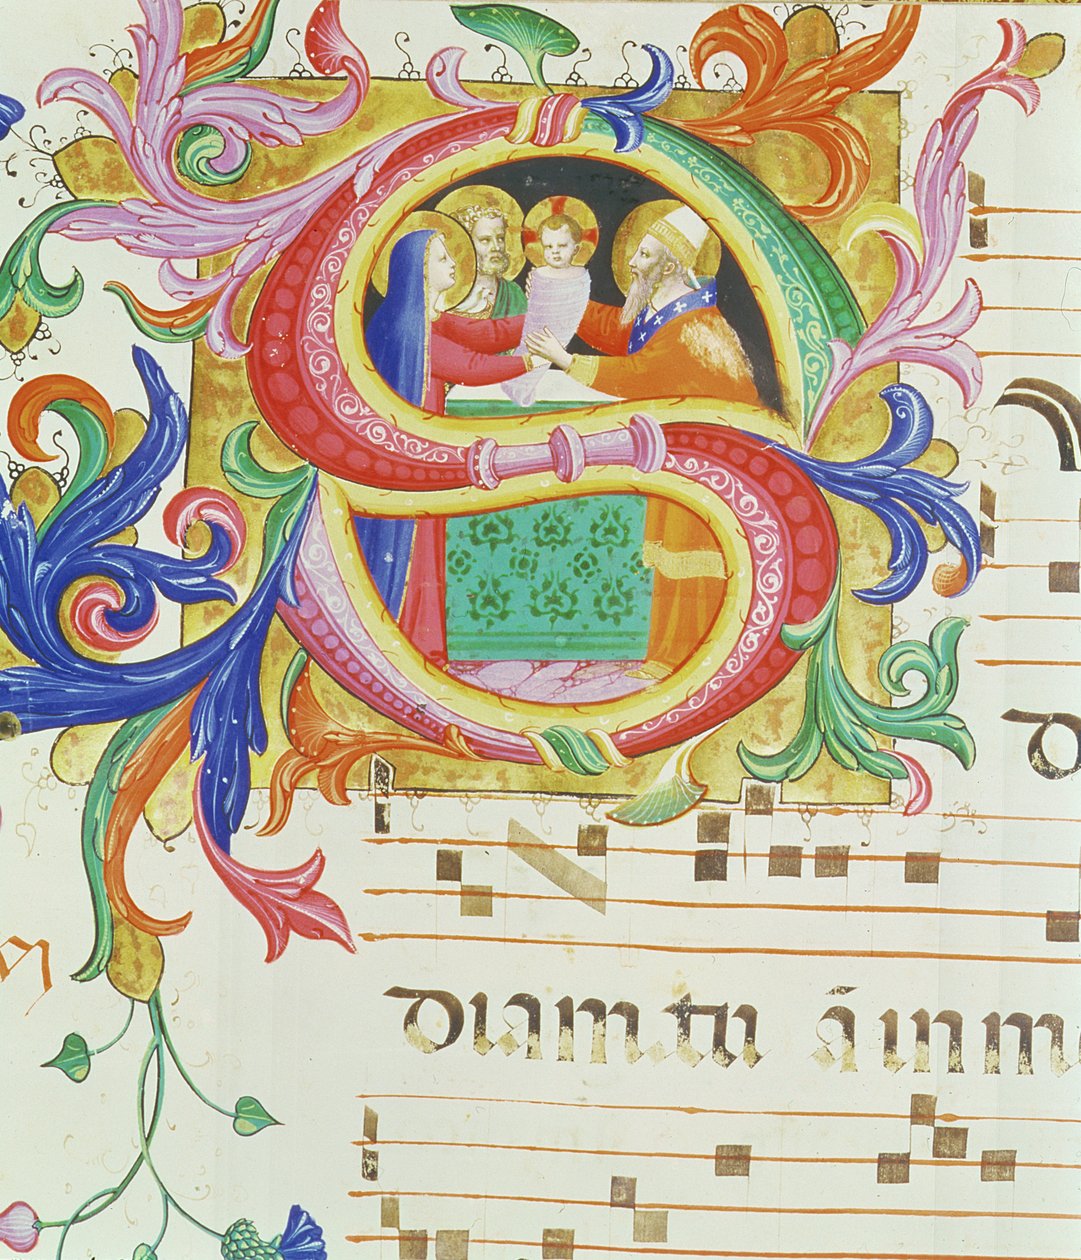 S
d
diam tu ā in m